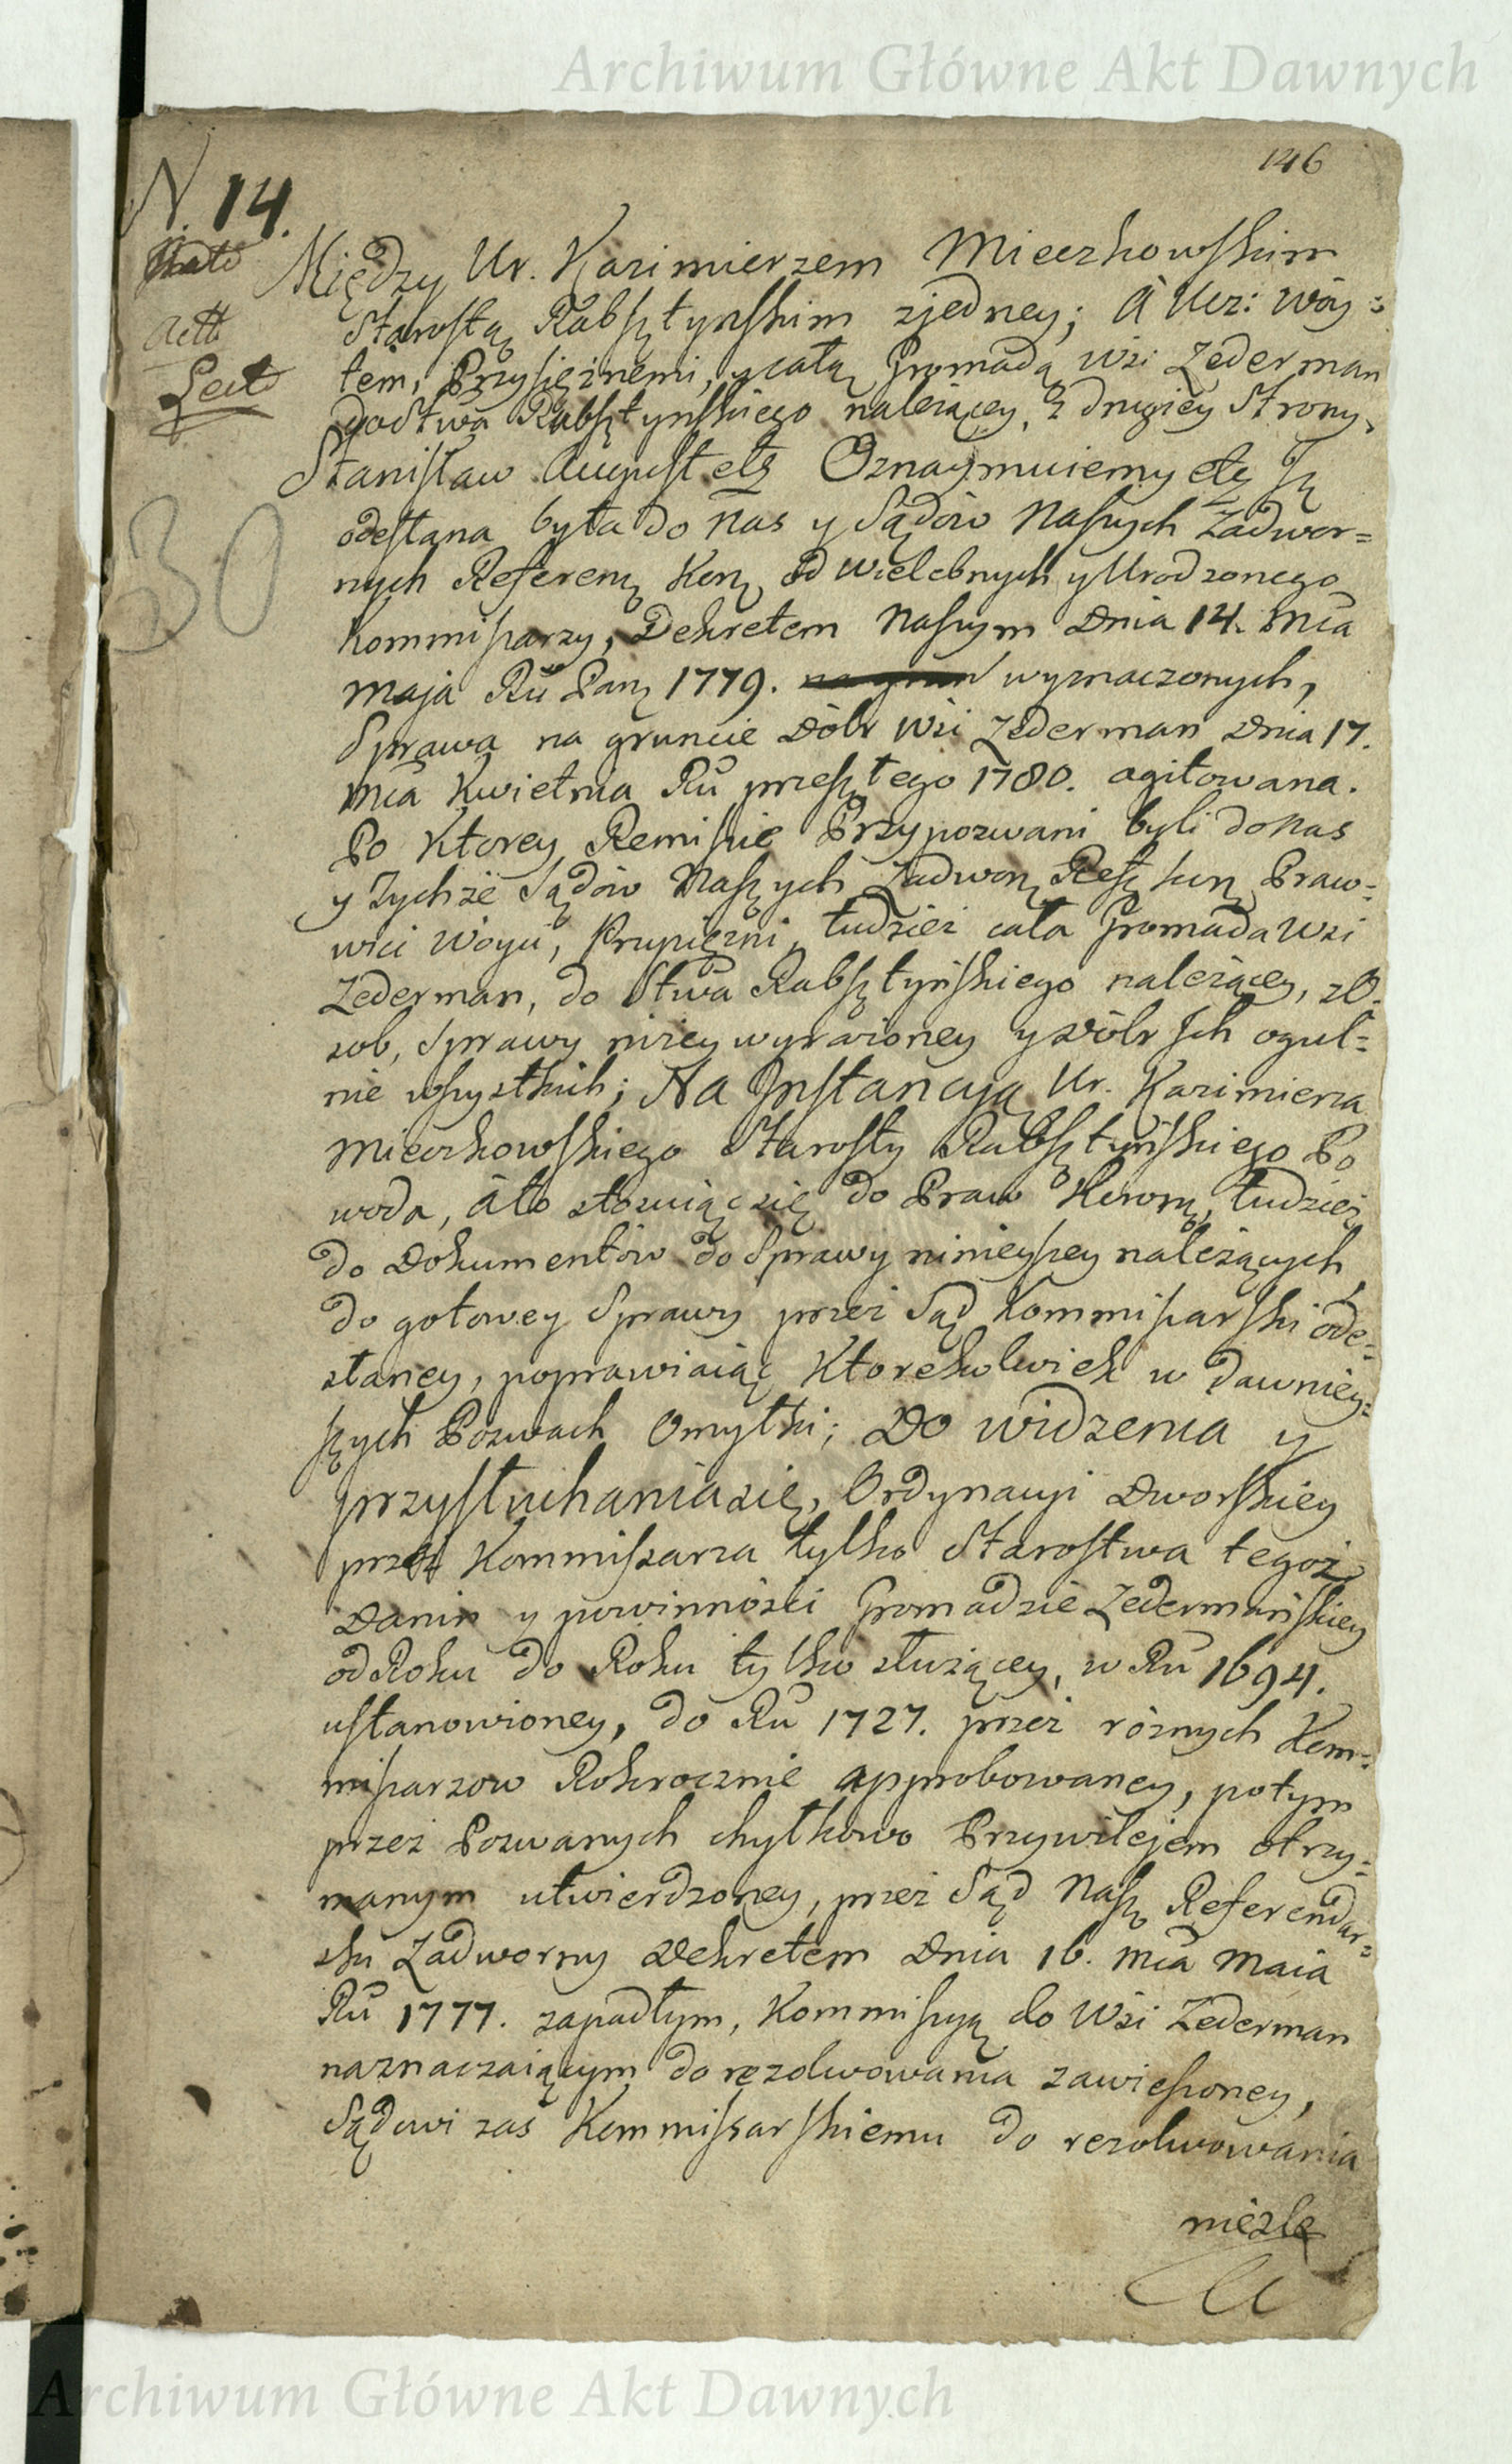 Archiwum Główne Akt Dawnych
146
N. 14.
Actt
Lect
30
Między Ur. Kazimierzem Mieczkowskim
Starostą Rabsztynskim zjedney; A Ucz: Wóy=
tem, Przysiężnemi, y całą Gromadą Wsi Zederman
do Stwa Rabsztynskiego należącey, z drugiey Strony,
Stanisław August etc Oznaymuiemy etc Iż
odesłana była do Nas y Sądów Naszych Zadwor=
nych Referen: Kor: od Wielebnych y Urodzonego
Kommisarzy, Dekretem Naszym Dnia 14. Mca
Maja Ru Pań: 1779. wyznaczonych,
Sprawa na gruncie Dóbr Wsi Zederman Dnia 17.
Mca Kwietnia Ru przeszłego 1780. agitowana.
Po Ktorey Remisie Przypozwani byli do Nas
y Tychże Sądów Naszych Zadwor: Praw=
wici Woyci, Przysiężni, tudzież cała Gromada Wsi
Zederman, do Stwa Rabsztyńskiego należącey, z O=
sob, Sprawy niżey wyrażoney y Dóbr Ich ogul=
nie wszystkich; Na Instancyą Ur. Kazimierza
Mieczkowskiego Starosty Rabsztyńskiego Po
woda, A to stosuiąc się do Praw Koron: tudzież
do Dokumentów do Sprawy ninieyszey należących
do gotowey Sprawy przez Sąd Kommisarski ode=
słaney, poprawiaiąc Ktorekolwiek w dawniey=
szych Pozwach Omyłki; Do widzenia y
przysłuchania się, Ordynacyi Dworskiey
przez Kommissarza tylko Starostwa tegoż
Danin y powinności Gromadzie Zedermańskiey
od Roku do Roku tylko służącey, w Ru 1694.
ustanowioney, do Ru 1727. przez różnych Kom=
misarzow Rokrocznie approbowaney, potym
przez Pozwanych chytkowo Przywilejem otrzy=
manym utwierdzoney, przez Sąd Nasz Referendar=
ski Zadworny Dekretem Dnia 16. Mca Maia
Ru 1777. zapadłym, Kommisyą do Wsi Zederman
naznaczaiącym do rezolwowania zawieszoney,
Sądowi zaś Kommissarskiemu do rezolwowania
niezle
Archiwum Główne Akt Dawnych